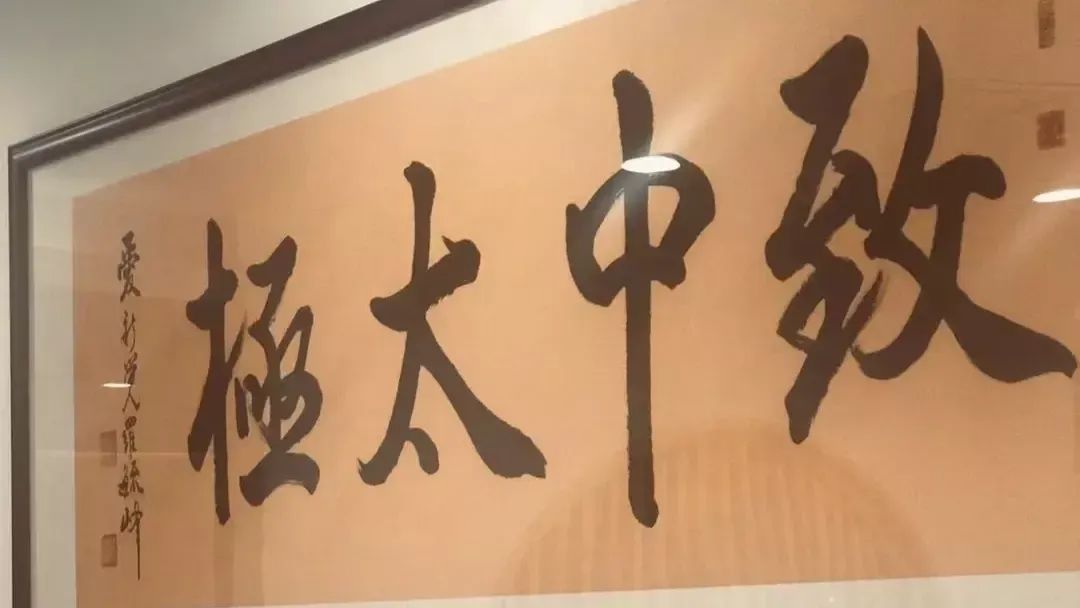 致中太極
爱新覺羅毓峰